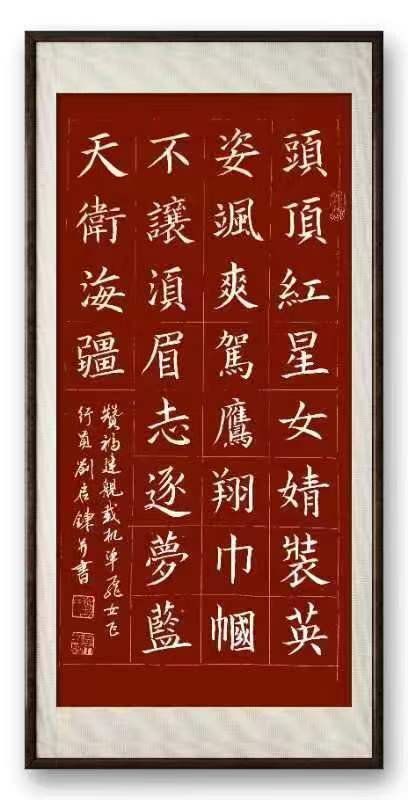 頭頂紅星女婧裝英
姿颯爽駕鷹翔巾幗
不讓湏眉志逐夢藍
天衛海疆
贊福建舰載机單飛女飞
行員 劉启鍊 并書